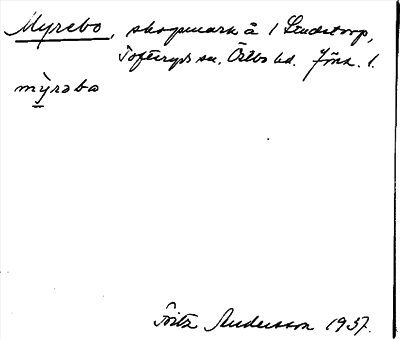 Myrebo, skogsmark å 1 Lindstorp,
Tofteryds sn. Östbo hd. Jönk. l.
mỳ̠rəbo
Fritz Andersson 1937.